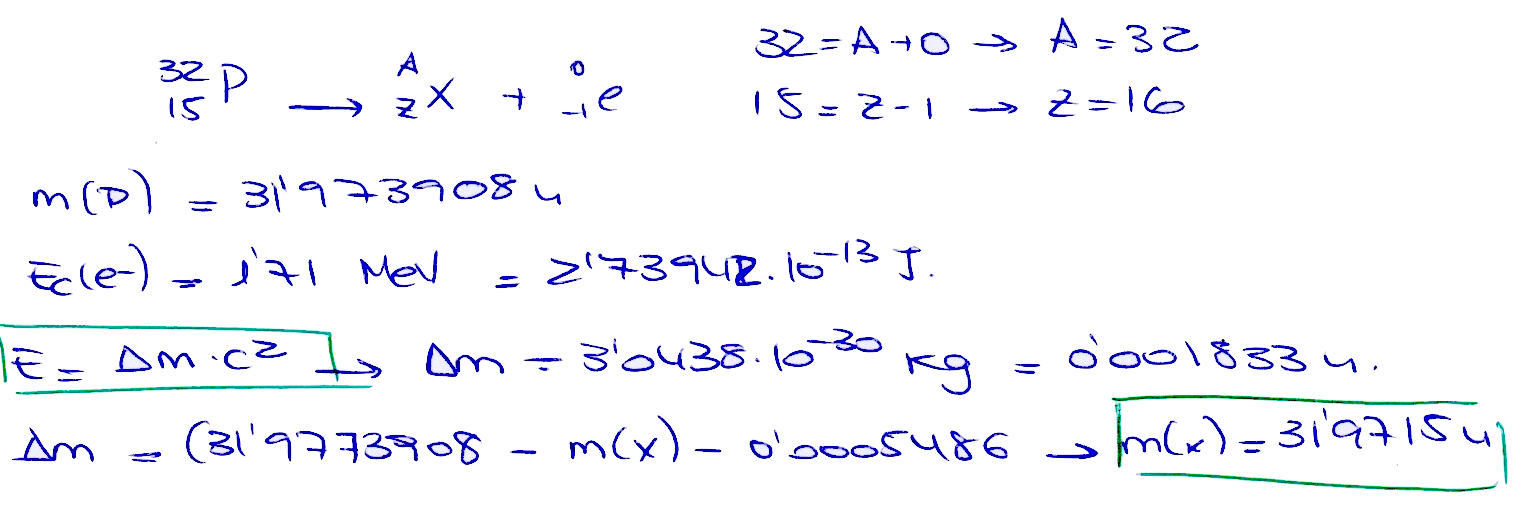 ³²₁₅P → ᴬ_Z X + ⁰₋₁e    32 = A + 0 → A = 32
15 = Z - 1 → Z = 16
m(P) = 31'9739084 u
Ec(e-) = 1'71 MeV = 2'73942·10⁻¹³ J.
E = Δm·c² → Δm = 3'0438·10⁻³⁰ kg = 0'001833 u.
Δm = (31'9773908 - m(x) - 0'0005486 → m(x) = 31'9715 u